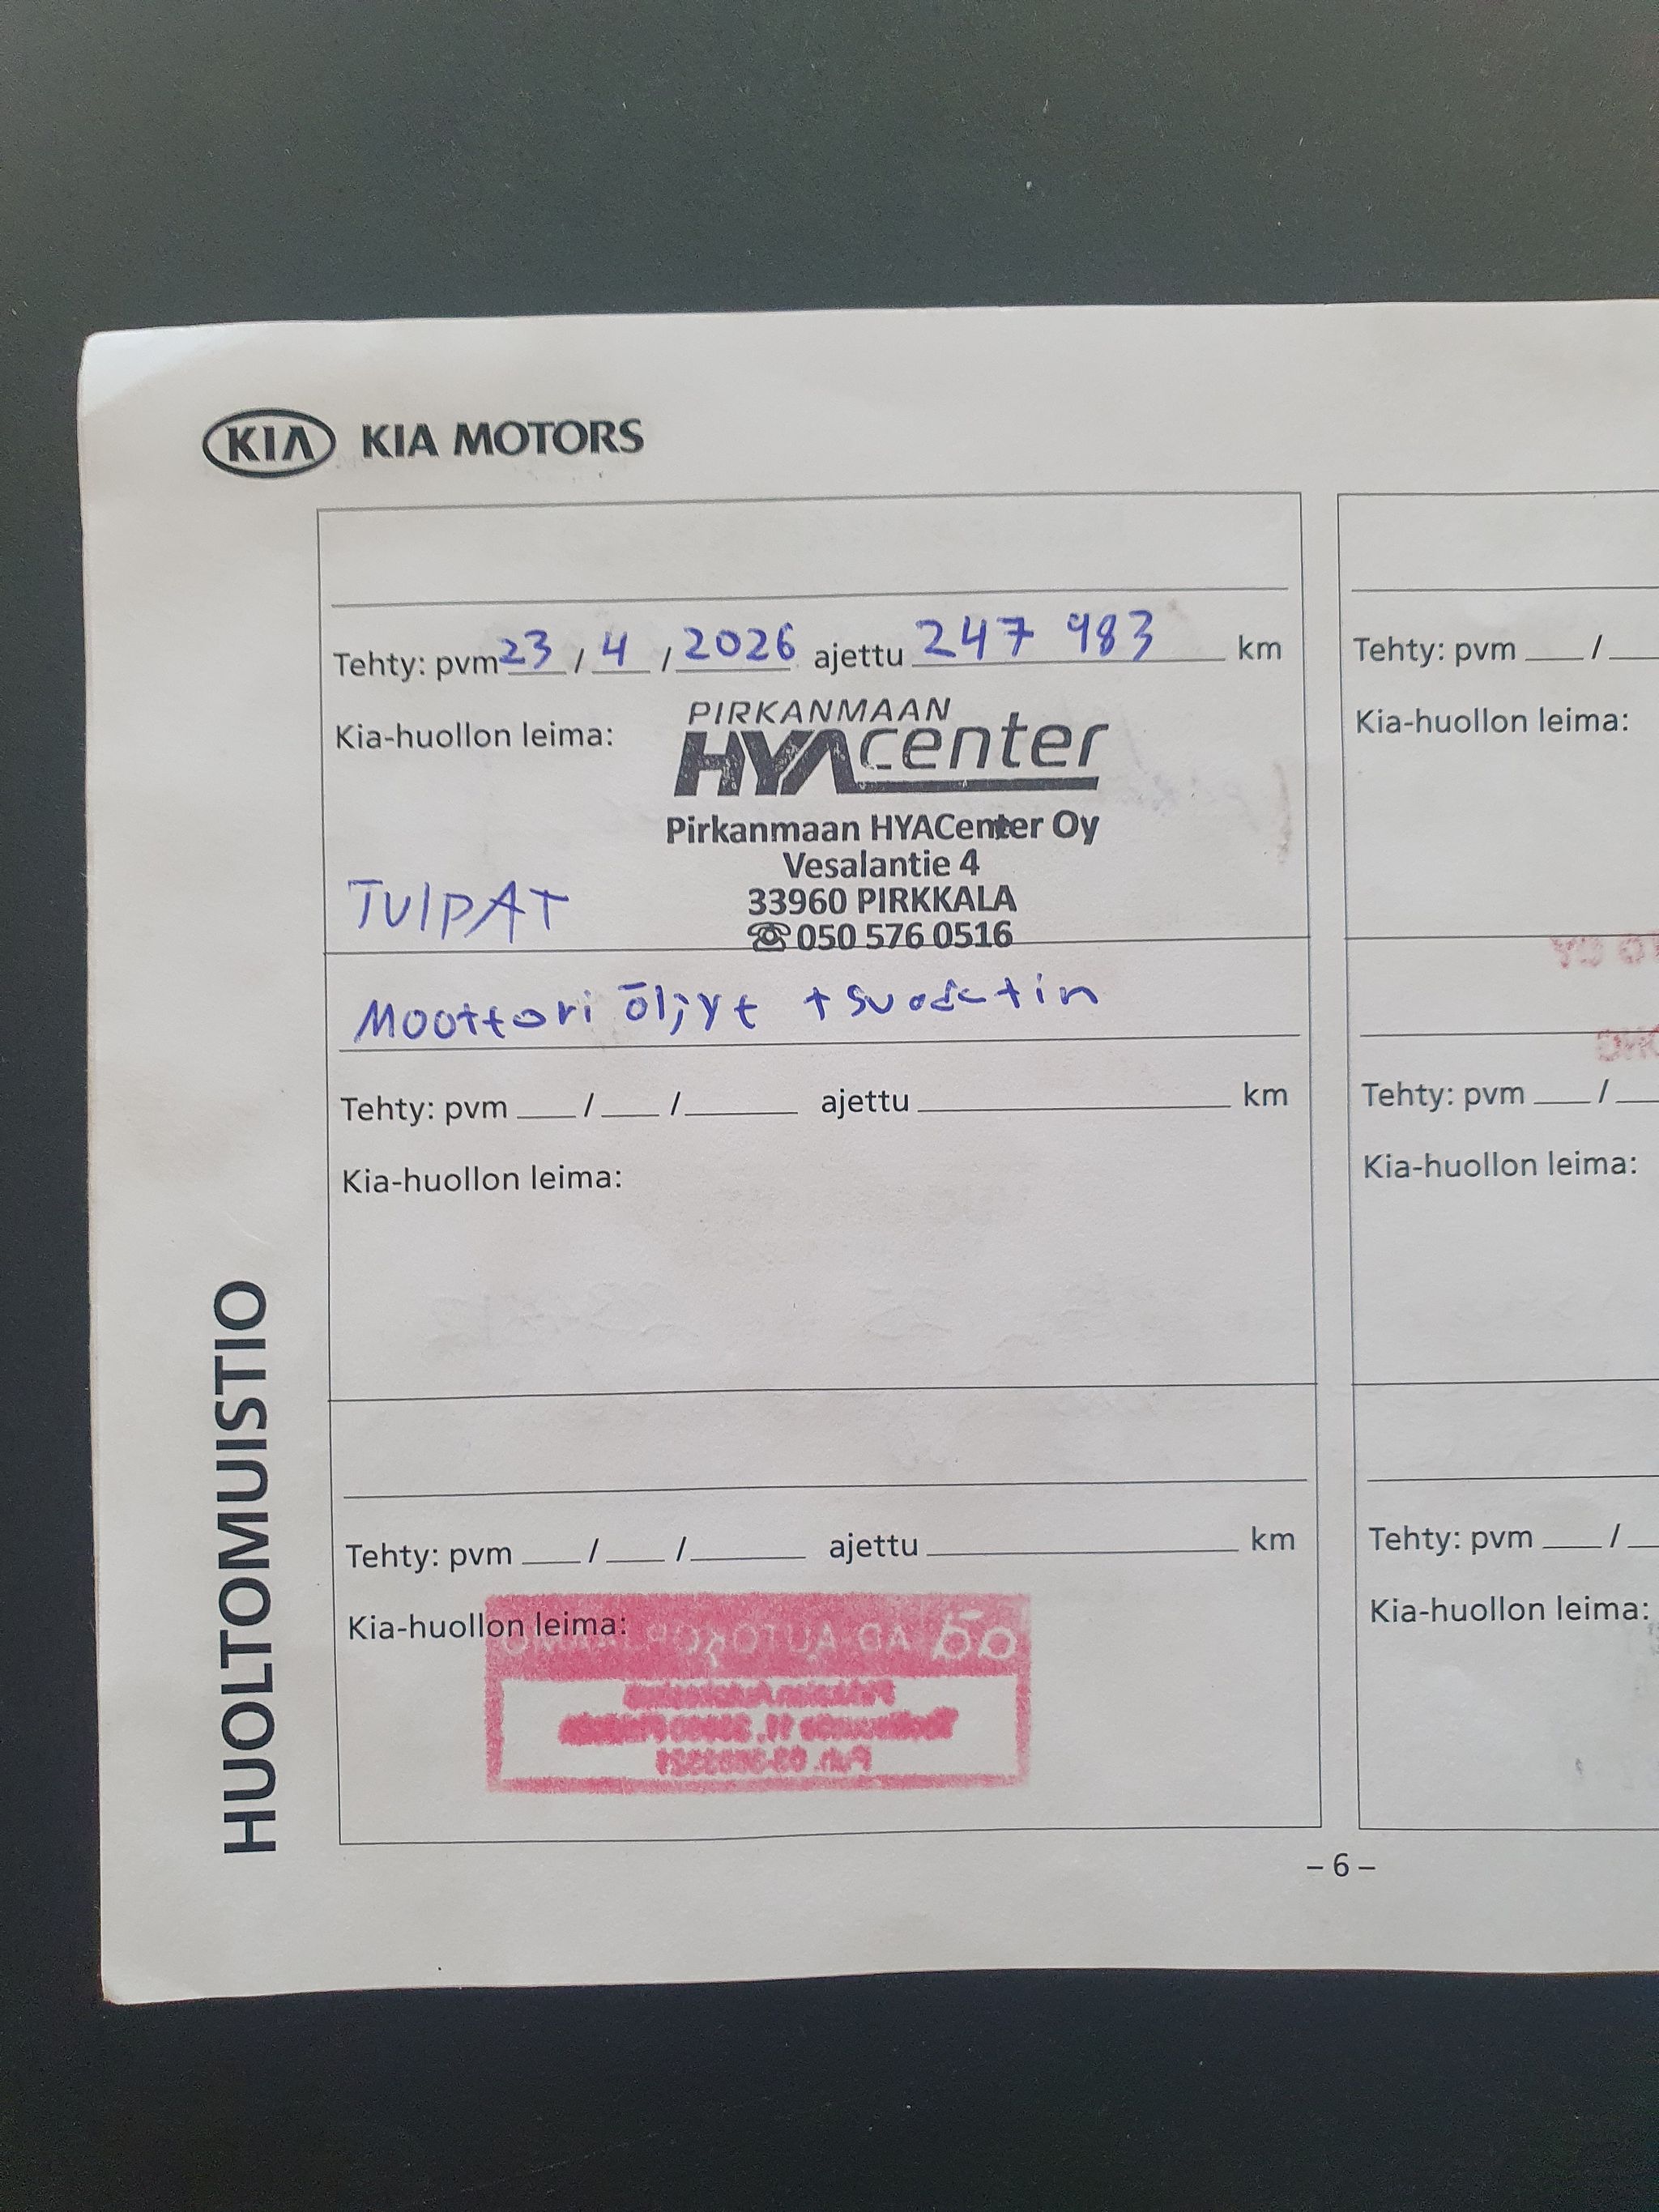 KIA KIA MOTORS
Tehty: pvm 23 / 4 / 2026 ajettu 247 983 km
Kia-huollon leima:
PIRKANMAAN
HYAcenter
Pirkanmaan HYACenter Oy
Vesalantie 4
33960 PIRKKALA
☏ 050 576 0516
TULPAT
Moottori öljyt + suodatin
Tehty: pvm ___/___/___ ajettu ___ km
Kia-huollon leima:
Tehty: pvm ___/___/___ ajettu ___ km
Kia-huollon leima:
AD AUTOKORJAAMO
Puh.
HUOLTOMUISTIO
Tehty: pvm ___/
Kia-huollon leima:
Tehty: pvm ___/
Kia-huollon leima:
Tehty: pvm ___/
Kia-huollon leima:
– 6 –